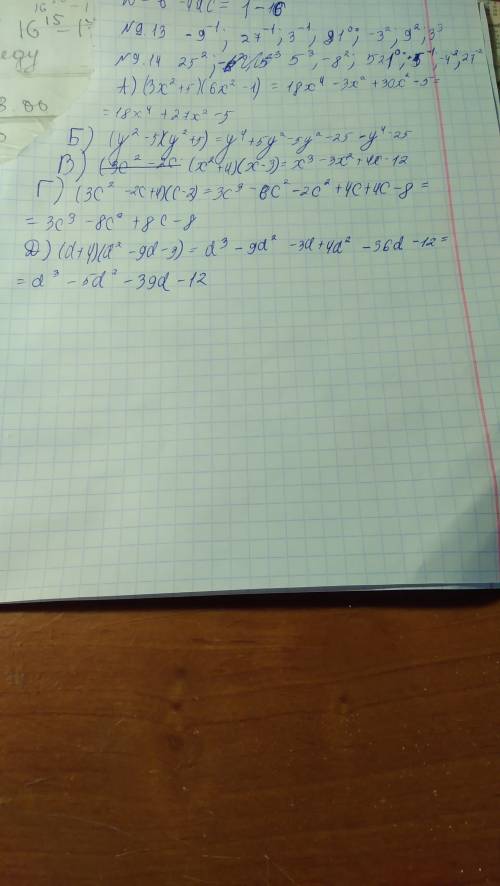 16¹⁵ - 1
= 1 - 16
16¹⁵ - 1
еду
N 9.13 -9⁻¹; 27⁻¹; 3⁻¹; 91⁰; -3²; 9²; 3³
N 9.14 25²; 5³; -8²; 521⁰; -5⁻¹; -4²; 25²
А) (3x²+5)(6x²-1) = 18x⁴ - 3x² + 30x² - 5 =
= 18x⁴ + 27x² - 5
Б) (y²-5)(y²+5) = y⁴ + 5y² - 5y² - 25 = y⁴ - 25
В) (3c² - 2c (x²+4)(x-3) = x³ - 3x² + 4x - 12
Г) (3c² - 2c+4)(c-2) = 3c³ - 6c² - 2c² + 4c + 4c - 8 =
= 3c³ - 8c² + 8c - 8
Д) (d+4)(d² - 9d - 3) = d³ - 9d² - 3d + 4d² - 36d - 12 =
= d³ - 5d² - 39d - 12